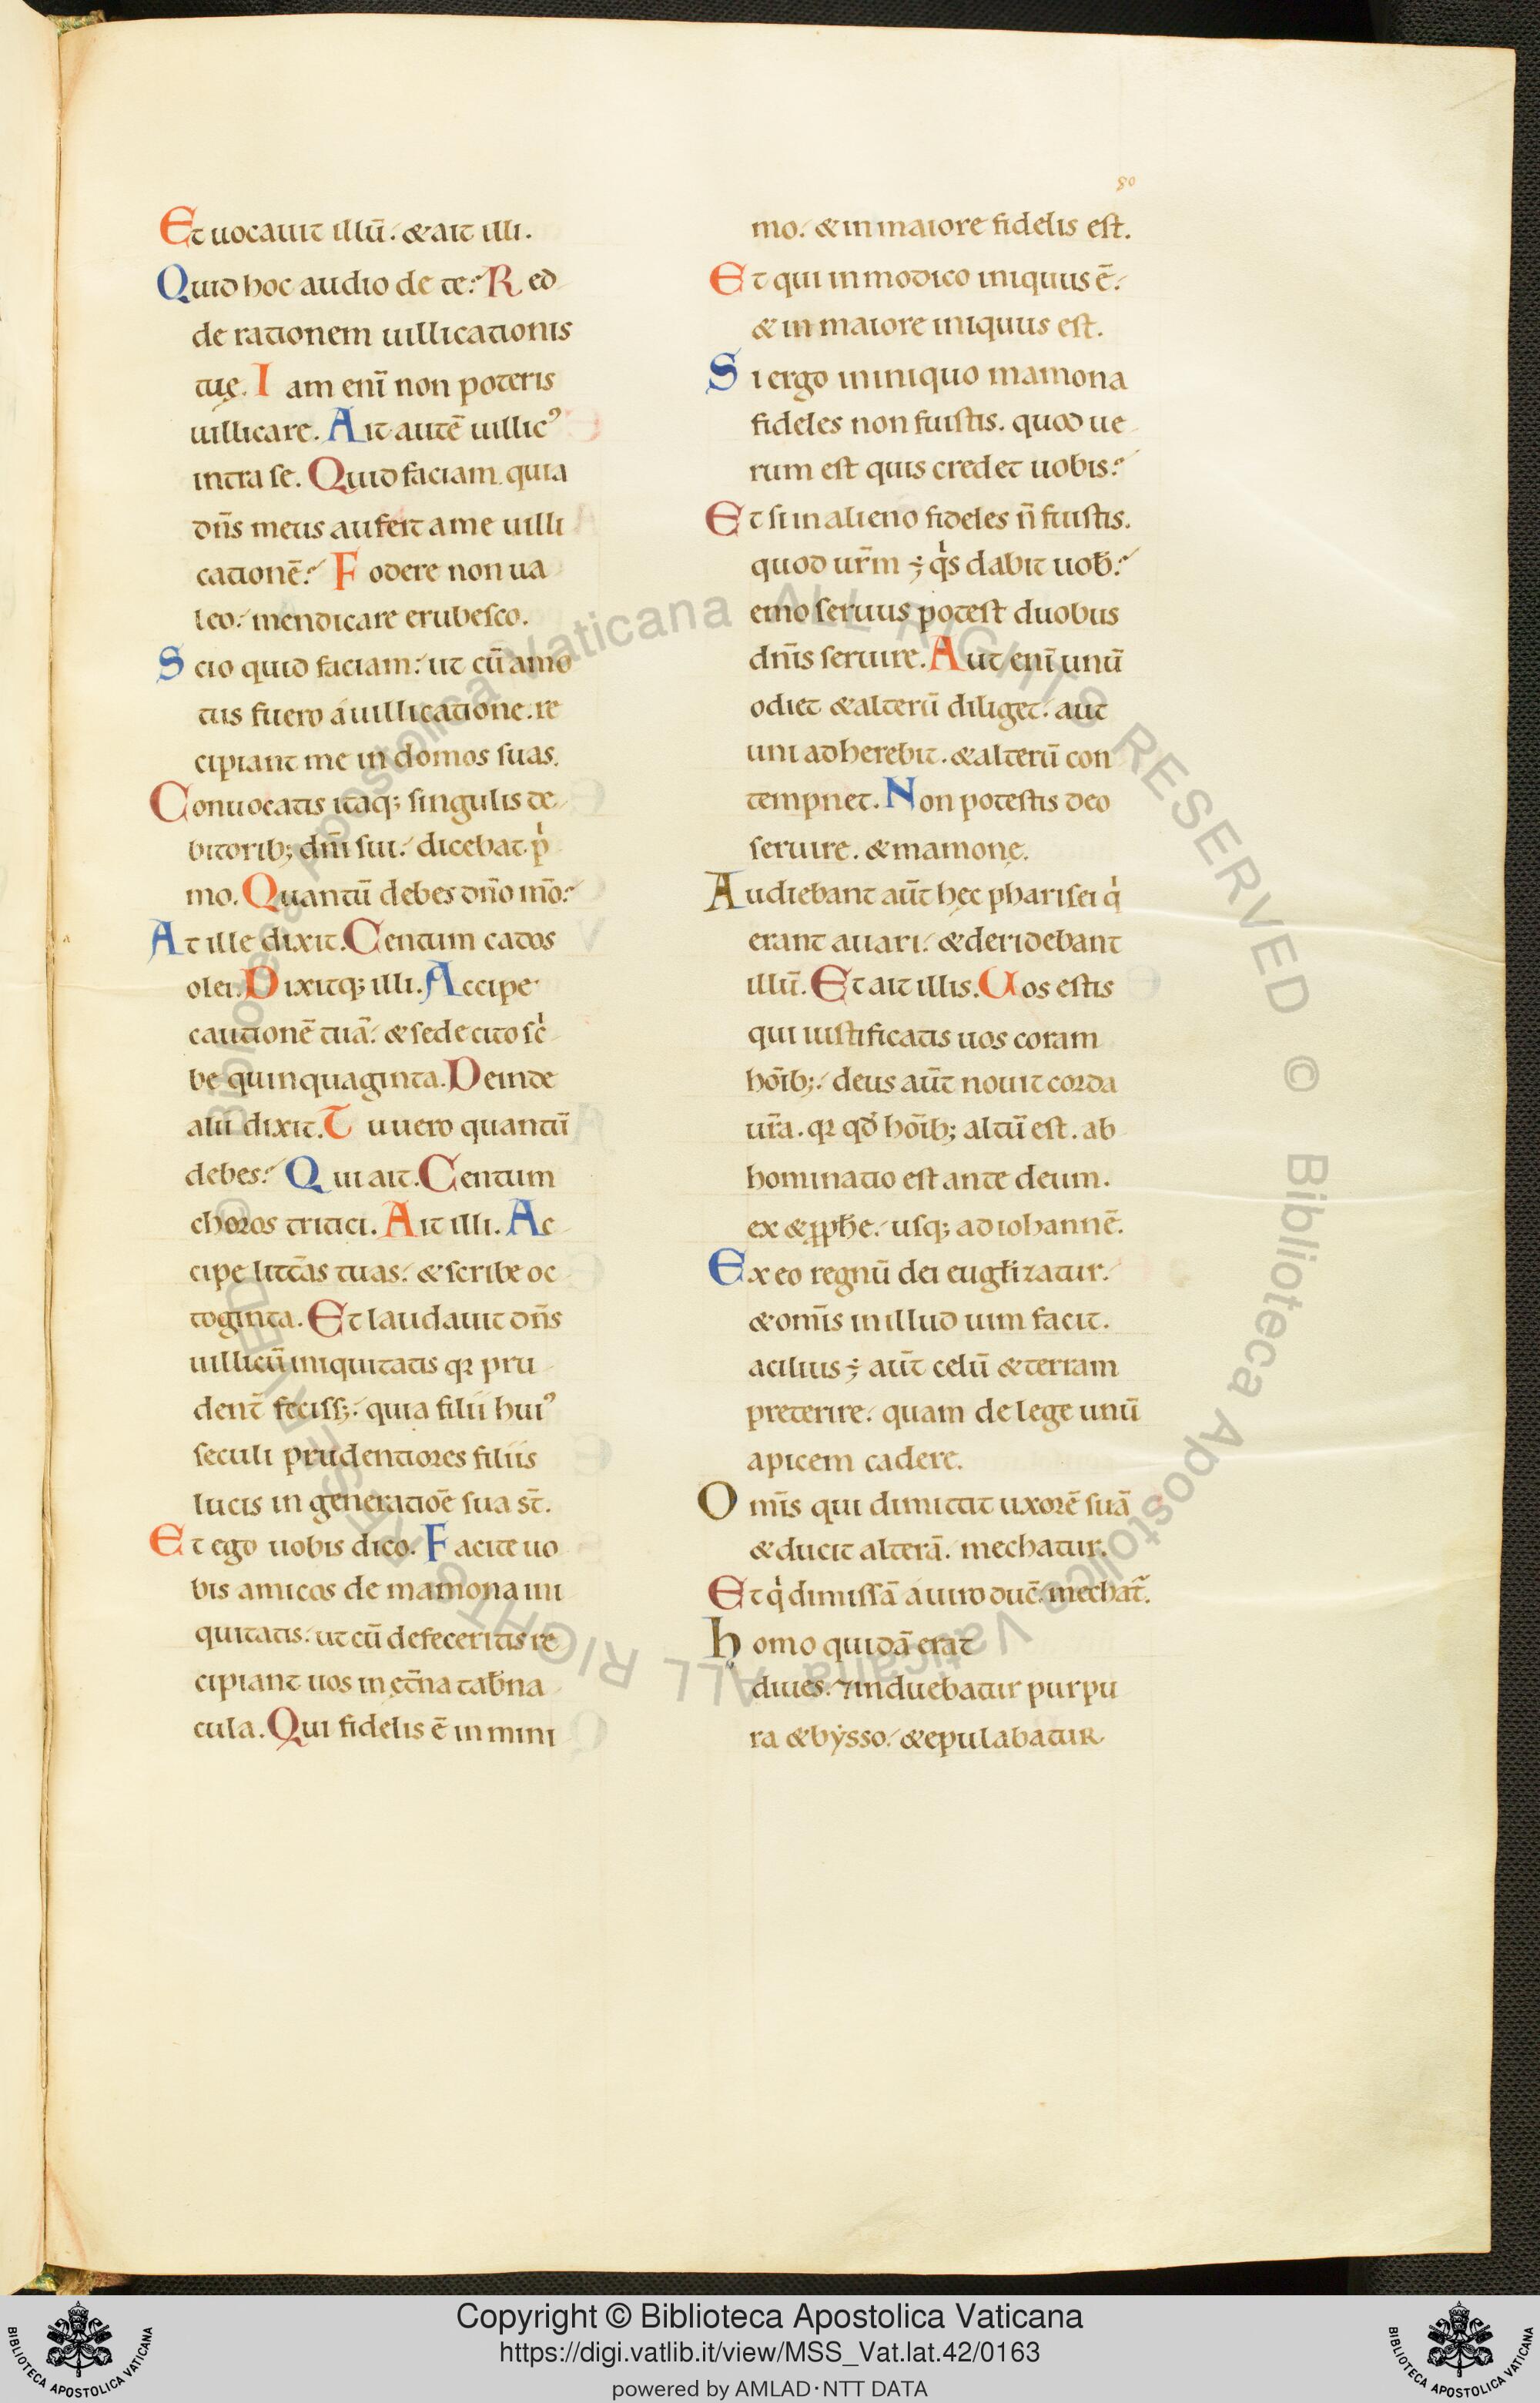 80
Et uocauit illū. & ait illi.
Quid hoc audio de te? Red
de rationem uillicationis
tuę. Iam enī non poteris
uillicare. Ait autē uillicꝰ
intra se. Quid faciam quia
dn̄s meus aufert a me uilli
cationē? Fodere non ua
leo. mendicare erubesco.
Scio quid faciam. ut cū amo
tus fuero á uillicatione. re
cipiant me in domos suas.
Conuocatis itaq; singulis de
bitorib; dn̄i sui. dicebat pⁱ
mo. Quantū debes dn̄o mō?
At ille dixit. Centum cados
olei. Dixitq; illi. Accipe
cautionē tuā. & sede cito scⁱ
be quinquaginta. Deinde
alii dixit. Tu uero quantū
debes? Qui ait. Centum
choros tritici. Ait illi. Ac
cipe litt̄as tuas. & scribe oc
toginta. Et laudauit dn̄s
uillicū iniquitatis qꝛ pru
dent̄ feciss;. quia filii huiꝰ
seculi prudentiores filiis
lucis in generatiōe sua st̄.
Et ego uobis dico. Facite uo
bis amicos de mamona ini
quitatis. ut cū defeceritis re
cipiant uos in ęt̄na tab̄na
cula. Qui fidelis ē in mini
mo. & in maiore fidelis est.
Et qui in modico iniquus ē.
& in maiore iniquus est.
Si ergo in iniquo mamona
fideles non fuistis. quod ue
rum est quis credet uobis?
Et si in alieno fideles n̄ fuistis.
quod ur̄m ÷ qⁱs dabit uob̄?
emo seruus potest duobus
dn̄is seruire. Aut enī unū
odiet & alterū diliget. aut
uni adherebit. & alterū con
tempnet. Non potestis deo
seruire. & mamonę.
Audiebant aūt hęc pharisei qⁱ
erant auari. & deridebant
illū. Et ait illis. Uos estis
qui iustificatis uos coram
hōib;. deus aūt nouit corda
ur̄a. qꝛ qd̄ hōib; altū est. ab
hominatio est ante deum.
ex & ꝓph̄e. usq; ad iohannē.
Ex eo regnū dei eugl̄izatur.
& omīs in illud uim facit.
acilius ÷ aūt celū & terram
preterire. quam de lege unū
apicem cadere.
Omīs qui dimittit uxorē suā
& ducit alterā. mechatur.
Et qⁱ dimissā á uiro duc̄. mechat̄.
homo quidā erat
diues. ⁊ induebatur purpu
ra & bẏsso. & epulabatur
Copyright © Biblioteca Apostolica Vaticana
https://digi.vatlib.it/view/MSS_Vat.lat.42/0163
powered by AMLAD·NTT DATA
BIBLIOTECA APOSTOLICA VATICANA
BIBLIOTECA APOSTOLICA VATICANA
© Biblioteca Apostolica Vaticana ALL RIGHTS RESERVED © Biblioteca Apostolica Vaticana ALL RIGHTS RESERVED